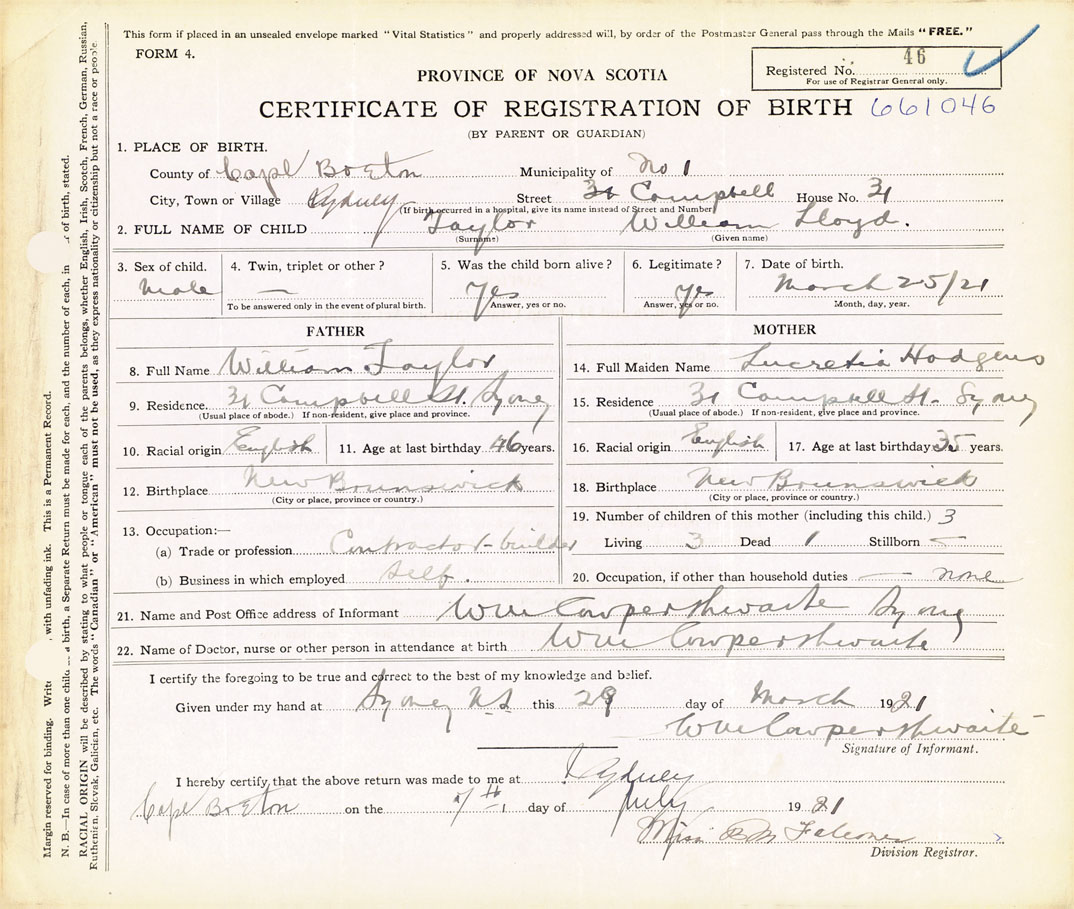 This form if placed in an unsealed envelope marked "Vital Statistics" and properly addressed will, by order of the Postmaster General pass through the Mails "FREE."
FORM 4.
Registered No. 46
For use of Registrar General only.
PROVINCE OF NOVA SCOTIA
CERTIFICATE OF REGISTRATION OF BIRTH 661046
(BY PARENT OR GUARDIAN)
1. PLACE OF BIRTH.
County of Cape Breton Municipality of No 1
City, Town or Village Sydney Street 31 Campbell House No. 31
(If birth occurred in a hospital, give its name instead of Street and Number)
2. FULL NAME OF CHILD Taylor William Lloyd.
(Surname) (Given name)
3. Sex of child. 4. Twin, triplet or other? 5. Was the child born alive? 6. Legitimate? 7. Date of birth.
Male — Yes Yes March 25/21
To be answered only in the event of plural birth. Answer, yes or no. Answer, yes or no. Month, day, year.
FATHER MOTHER
8. Full Name William Taylor 14. Full Maiden Name Lucretia Hodgens
9. Residence. 31 Campbell St. Sydney 15. Residence 31 Campbell St. Sydney
(Usual place of abode.) If non-resident, give place and province. (Usual place of abode.) If non-resident, give place and province.
10. Racial origin English 11. Age at last birthday 46 years. 16. Racial origin English 17. Age at last birthday 35 years.
12. Birthplace New Brunswick 18. Birthplace New Brunswick
(City or place, province or country.) (City or place, province or country.)
13. Occupation:— 19. Number of children of this mother (including this child.) 3
(a) Trade or profession Contractor-builder Living 3 Dead 1 Stillborn —
(b) Business in which employed Self. 20. Occupation, if other than household duties — none
21. Name and Post Office address of Informant Wm Cowperthwaite Sydney
22. Name of Doctor, nurse or other person in attendance at birth Wm Cowperthwaite
I certify the foregoing to be true and correct to the best of my knowledge and belief.
Given under my hand at Sydney N.S this 29 day of March 1921
Wm Cowperthwaite
Signature of Informant.
I hereby certify, that the above return was made to me at Sydney
Cape Breton on the 7th day of July 1921
Miss B M Falconer
Division Registrar.
Margin reserved for binding. Write with unfading ink. This is a Permanent Record.
N. B.—In case of more than one child a birth, a Separate Return must be made for each, and the number of each, in of birth, stated.
RACIAL ORIGIN will be described by stating to what people or tongue each of the parents belongs, whether English, Irish, Scotch, French, German, Russian,
Ruthenian, Slovak, Galician, etc. The words "Canadian" or "American" must not be used, as they express nationality or citizenship but not a race or people.